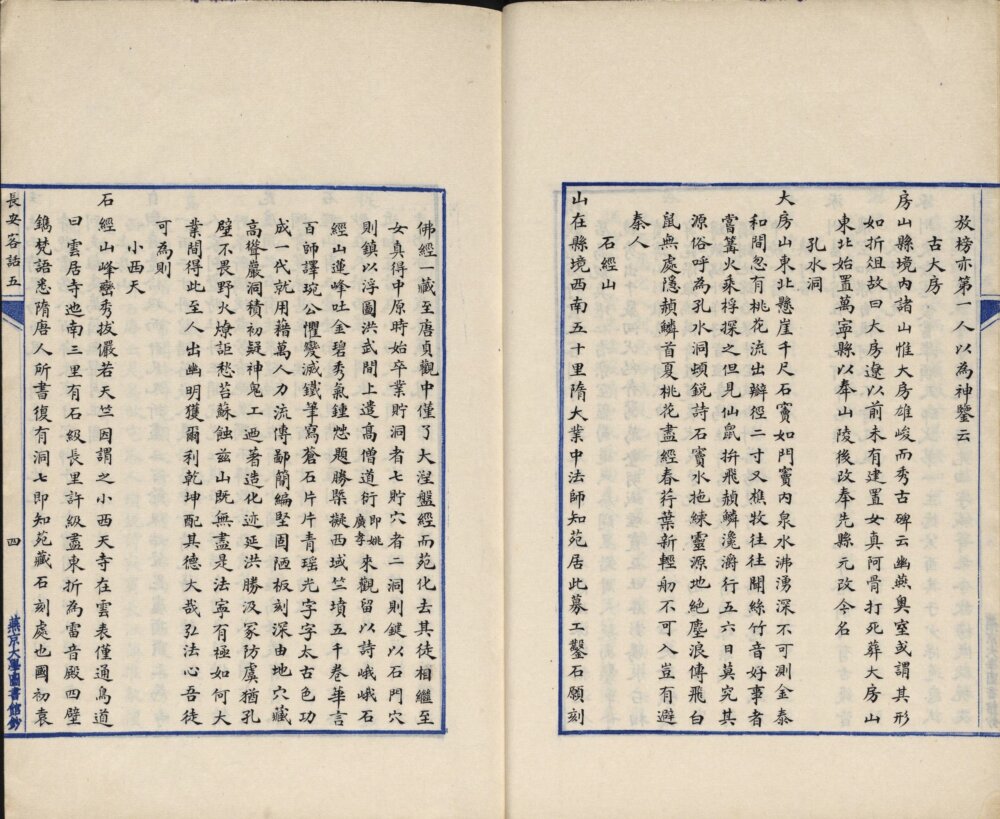 放榜亦第一人以為神鑒云
古大房
房山縣境內諸山惟大房雄峻而秀古碑云幽燕奧室或謂其形
如折俎故曰大房遼以前未有建置女真阿骨打死葬大房山
東北始置萬寧縣以奉山陵後改奉先縣元改今名
孔水洞
大房山東北懸崖千尺石竇如門竇內泉水沸湧深不可測金泰
和間忽有桃花流出瓣徑二寸又樵牧往往聞絲竹音好事者
嘗篝火乘桴探之但見仙鼠拚飛赬鱗瀺灂行五六日莫究其
源俗呼為孔水洞頓銳詩石竇水拖練靈源地絶塵浪傳飛白
鼠無處隱赬鱗首夏桃花盡經春荇葉新輕舠不可入豈有避
秦人
石經山
山在縣境西南五十里隋大業中法師知苑居此募工鑿石願刻
佛經一藏至唐貞觀中僅了大湼盤經而苑化去其徒相繼至
女真得中原時始卒業貯洞者七貯穴者二洞則鍵以石門穴
則鎮以浮圖洪武間上遣高僧道衍即姚廣孝來觀留以詩峨峨石
經山蓮峰吐金碧秀氣鍾㥡題勝槩擬西域竺墳五千卷華言
百師譯琬公懼變滅鐵筆寫蒼石片片青瑶光字字太古色功
成一代就用藉萬人力流傳鄙簡編堅固陋板刻深由地穴藏
高聳巖洞積初疑神鬼工迺著造化迹延洪勝汲冢防虞猶孔
壁不畏野火燎詎愁苔蘇蝕兹山既無盡是法寜有極如何大
業間得此至人出幽明獲爾利乾坤配其德大哉弘法心吾徒
可為則
小西天
石經山峰巒秀拔儼若天竺因謂之小西天寺在雲表僅通鳥道
曰雲居寺迤南三里有石級長里許級盡東折為雷音殿四壁
鐫梵語悉隋唐人所書復有洞七即知苑藏石刻處也國初袁
長安客話五
四
燕京大學圖書館鈔